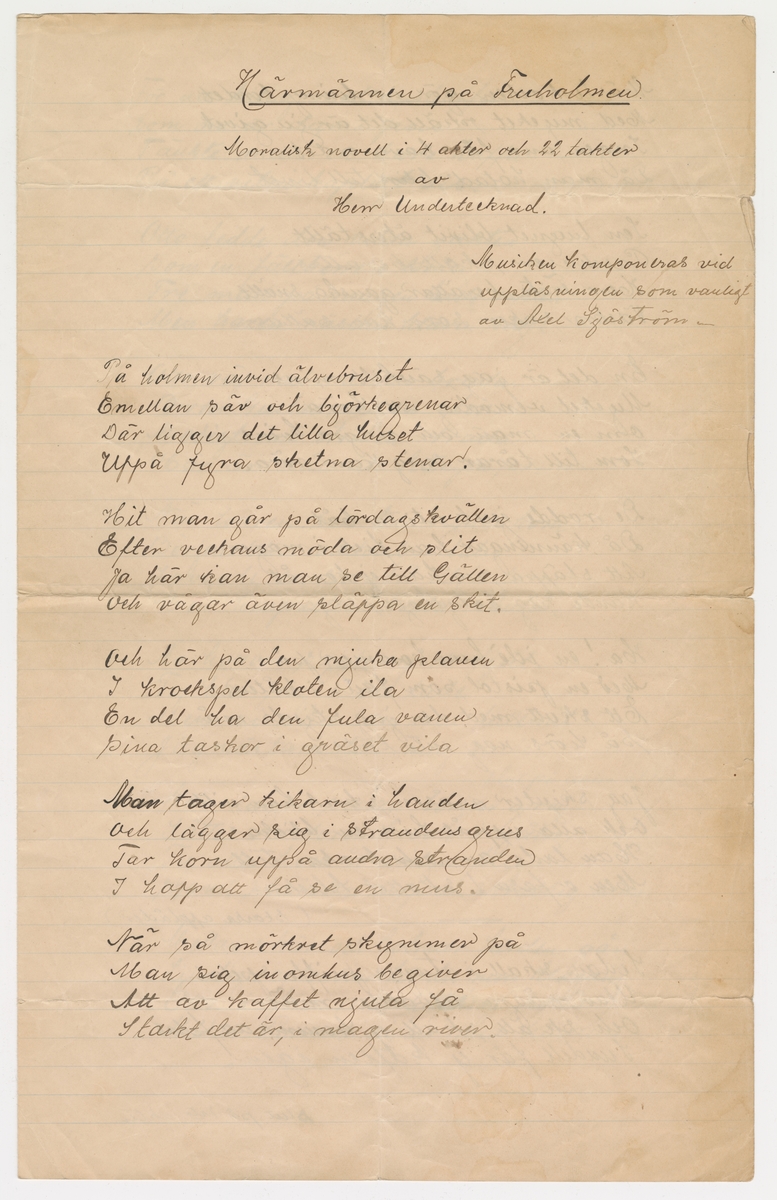 Härmännen på Fruholmen.
Moralisk novell i 4 akter och 22 takter
av
Herr Undertecknad.
Musiken komponeras vid
uppläsningen som vanligt
av Axel Sjöström
På holmen invid älvebruset
Emellan säv och björkegrenar
Där ligger det lilla huset
Uppå fyra sketna stenar.
Hit man går på lördagskvällen
Efter veckans möda och slit
Ja här kan man se till Gällen
Och vågar även släppa en skit.
Och här på den mjuka planen
I krockspel kloten ila
En del ha den fula vanen
Sina taskor i gräset vila
Man tager kikarn i handen
Och lägger sig i strandens grus
Tar korn uppå andra stranden
I hopp att få se en mus.
När så mörkret skymmer på
Man sig inomhus begiver
Att av kaffet njuta få
Starkt det är, i magen river.